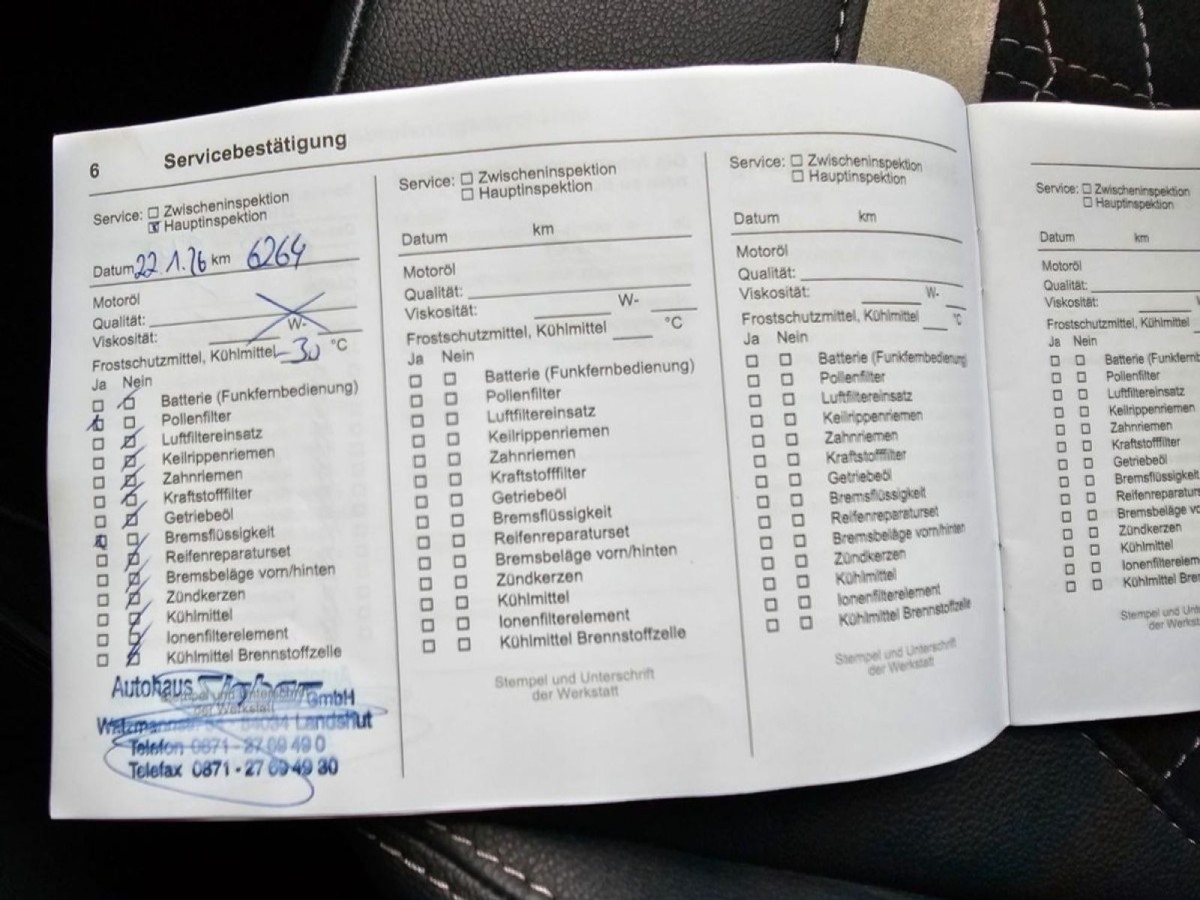 6 Servicebestätigung
Service: Zwischeninspektion
Hauptinspektion
Datum 22.1.26 km 6264
Motoröl
Qualität:
Viskosität: W-
Frostschutzmittel, Kühlmittel -30 °C
Ja Nein
Batterie (Funkfernbedienung)
Pollenfilter
Luftfiltereinsatz
Keilrippenriemen
Zahnriemen
Kraftstofffilter
Getriebeöl
Bremsflüssigkeit
Reifenreparaturset
Bremsbeläge vorn/hinten
Zündkerzen
Kühlmittel
Ionenfilterelement
Kühlmittel Brennstoffzelle
Stempel und Unterschrift
der Werkstatt
Autohaus GmbH
Landshut
Telefon 0871 - 27 09 49 0
Telefax 0871 - 27 09 49 30
Service: Zwischeninspektion
Hauptinspektion
Datum km
Motoröl
Qualität:
Viskosität: W-
Frostschutzmittel, Kühlmittel °C
Ja Nein
Batterie (Funkfernbedienung)
Pollenfilter
Luftfiltereinsatz
Keilrippenriemen
Zahnriemen
Kraftstofffilter
Getriebeöl
Bremsflüssigkeit
Reifenreparaturset
Bremsbeläge vorn/hinten
Zündkerzen
Kühlmittel
Ionenfilterelement
Kühlmittel Brennstoffzelle
Stempel und Unterschrift
der Werkstatt
Service: Zwischeninspektion
Hauptinspektion
Datum km
Motoröl
Qualität:
Viskosität: W-
Frostschutzmittel, Kühlmittel °C
Ja Nein
Batterie (Funkfernbedienung)
Pollenfilter
Luftfiltereinsatz
Keilrippenriemen
Zahnriemen
Kraftstofffilter
Getriebeöl
Bremsflüssigkeit
Reifenreparaturset
Bremsbeläge vorn/hinten
Zündkerzen
Kühlmittel
Ionenfilterelement
Kühlmittel Brennstoffzelle
Stempel und Unterschrift
der Werkstatt
Service: Zwischeninspektion
Hauptinspektion
Datum km
Motoröl
Qualität:
Viskosität:
Frostschutzmittel, Kühlmittel
Ja Nein
Batterie (Funkfernb
Pollenfilter
Luftfiltereinsatz
Keilrippenriemen
Zahnriemen
Kraftstofffilter
Getriebeöl
Bremsflüssigkeit
Reifenreparatur
Bremsbeläge vo
Zündkerzen
Kühlmittel
Ionenfilterelem
Kühlmittel Bre
Stempel und Unters
der Werkst